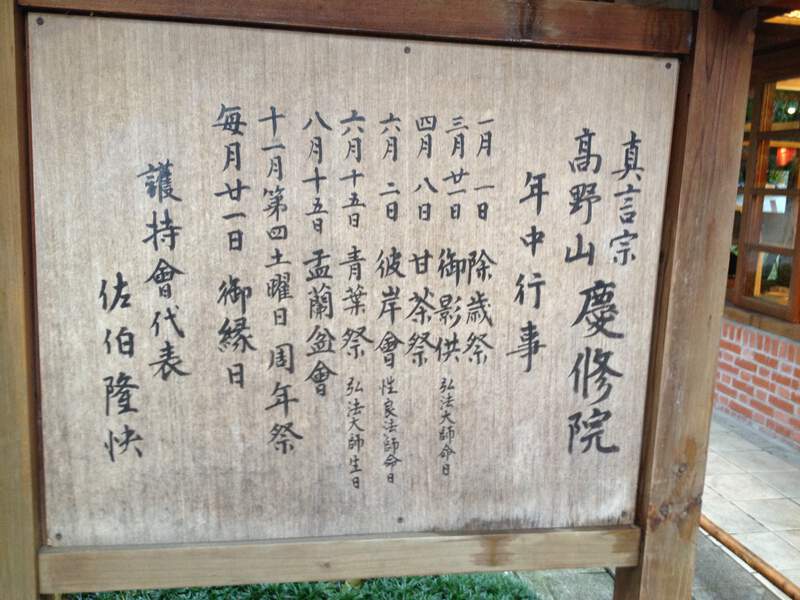 真言宗
高野山 慶修院
年中行事
一月 一日 除歳祭
三月廿一日 御影供 弘法大師命日
四月 八日 甘茶祭
六月 二日 彼岸會 性良法師命日
六月十五日 青葉祭 弘法大師生日
八月十五日 盂蘭盆會
十一月第四土曜日 周年祭
每月廿一日 御縁日
護持會代表
佐伯隆快